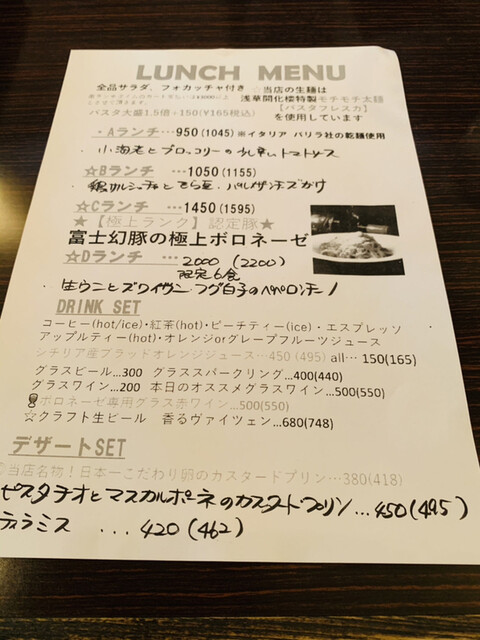 LUNCH MENU
全品サラダ、フォカッチャ付き ☆当店の生麺は
浅草開化楼特製モチモチ太麺
【パスタフレスカ】
パスタ大盛1.5倍+150(¥165税込) を使用しています
・Aランチ…950(1045) ※イタリア バリラ社の乾麺使用
・小海老とブロッコリーの少し辛いトマトソース
☆Bランチ …1050(1155)
☆Cランチ …1450(1595)
★【極上ランク】認定豚★
富士幻豚の極上ボロネーゼ
☆Dランチ …2000(2200)
限定6食
・生ウニとズワイガニ フグ白子のペペロンチーノ
DRINK SET
コーヒー(hot/ice)・紅茶(hot)・ピーチティー(ice)・エスプレッソ
アップルティー(hot)・オレンジorグレープフルーツジュース
シチリア産ブラッドオレンジジュース…450(495) all… 150(165)
グラスビール…300 グラススパークリング…400(440)
グラスワイン…200 本日のオススメグラスワイン…500(550)
ボロネーゼ専用グラス赤ワイン…500(550)
☆クラフト生ビール 香るヴァイツェン…680(748)
デザートSET
当店名物！日本一こだわり卵のカスタードプリン…380(418)
ピスタチオとマスカルポーネのカスタードプリン…450(495)
ティラミス ...420(462)